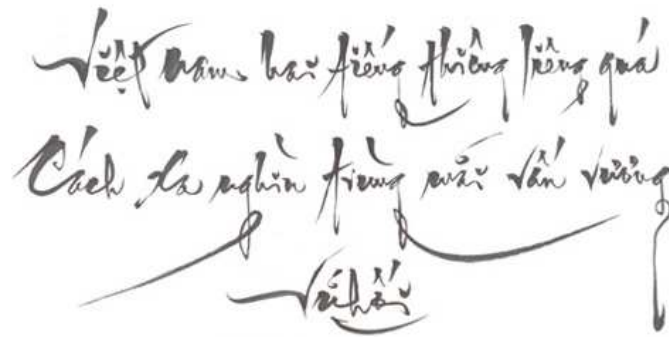 Việt nam hai tiếng thiêng liêng quá
Cách xa nghìn trùng mãi vấn vương
Vũ hối